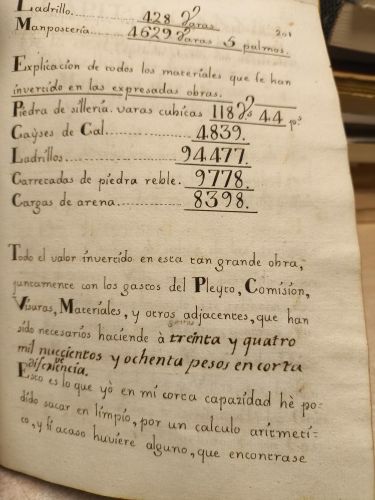 Ladrillo. .......... 428 Varas
201
Manpostería. ...... 4629 Varas 5 palmos.
Explicacíon de todos los materíales que se han
invertído en las expresadas obras.
Píedra de sílleria. varas cubicas 118 Vs 44 ps
Cayses de Cal. .......... 4839.
Ladrillos. .......... 94477.
Carretadas de píedra reble. 9778.
Cargas de arena. .......... 8398.
Todo el valor invertído en esta tan grande obra,
juntamente con los gastos del Pleyto, Comisíon,
Visuras, Materíales, y otros adjacentes, que han
sído necesaríos hacíende à treínta y quatro
mil nuecíentos y ochenta pesos en corta
diferencía.
Esto es lo que yò en mí corta capazídad hè po=
dído sacar en límpío, por un calculo arítmetí=
co, y sí acaso huvíere alguno, que encontrase